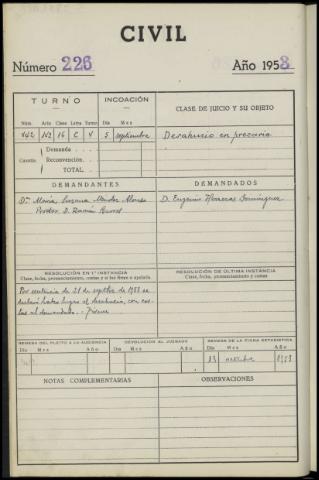 CIVIL
Número 226 Año 1953
TURNO INCOACIÓN CLASE DE JUICIO Y SU OBJETO
Núm. Artº Clase Letra Turno Día Mes
142 162 16 C 4 5 septiembre Desahucio en precario
Demanda
Cuantía Reconvención
TOTAL
DEMANDANTES DEMANDADOS
Dª María Méndez Alonso D. Eugenio Domínguez
Procdor. D. Ramón
RESOLUCIÓN EN 1ª INSTANCIA RESOLUCIÓN DE ÚLTIMA INSTANCIA
Clase, fecha, pronunciamiento, costas y si fue firme o apelada. Clase, fecha, pronunciamiento y costas
Por sentencia de 21 de septbre de 1953 se
declaró haber lugar al desahucio, con cos-
tas al demandado. - Firme
REMESA DEL PLEITO A LA AUDIENCIA DEVOLUCIÓN AL JUZGADO REMESA DE LA FICHA ESTADÍSTICA
Día Mes Año Día Mes Año Día Mes Año
13 octubre 1953
NOTAS COMPLEMENTARIAS OBSERVACIONES